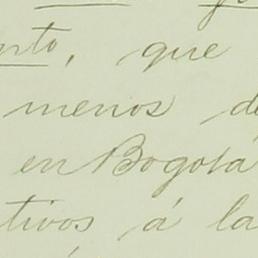 rto, que
menos de
en Bogotá
tivos, á la